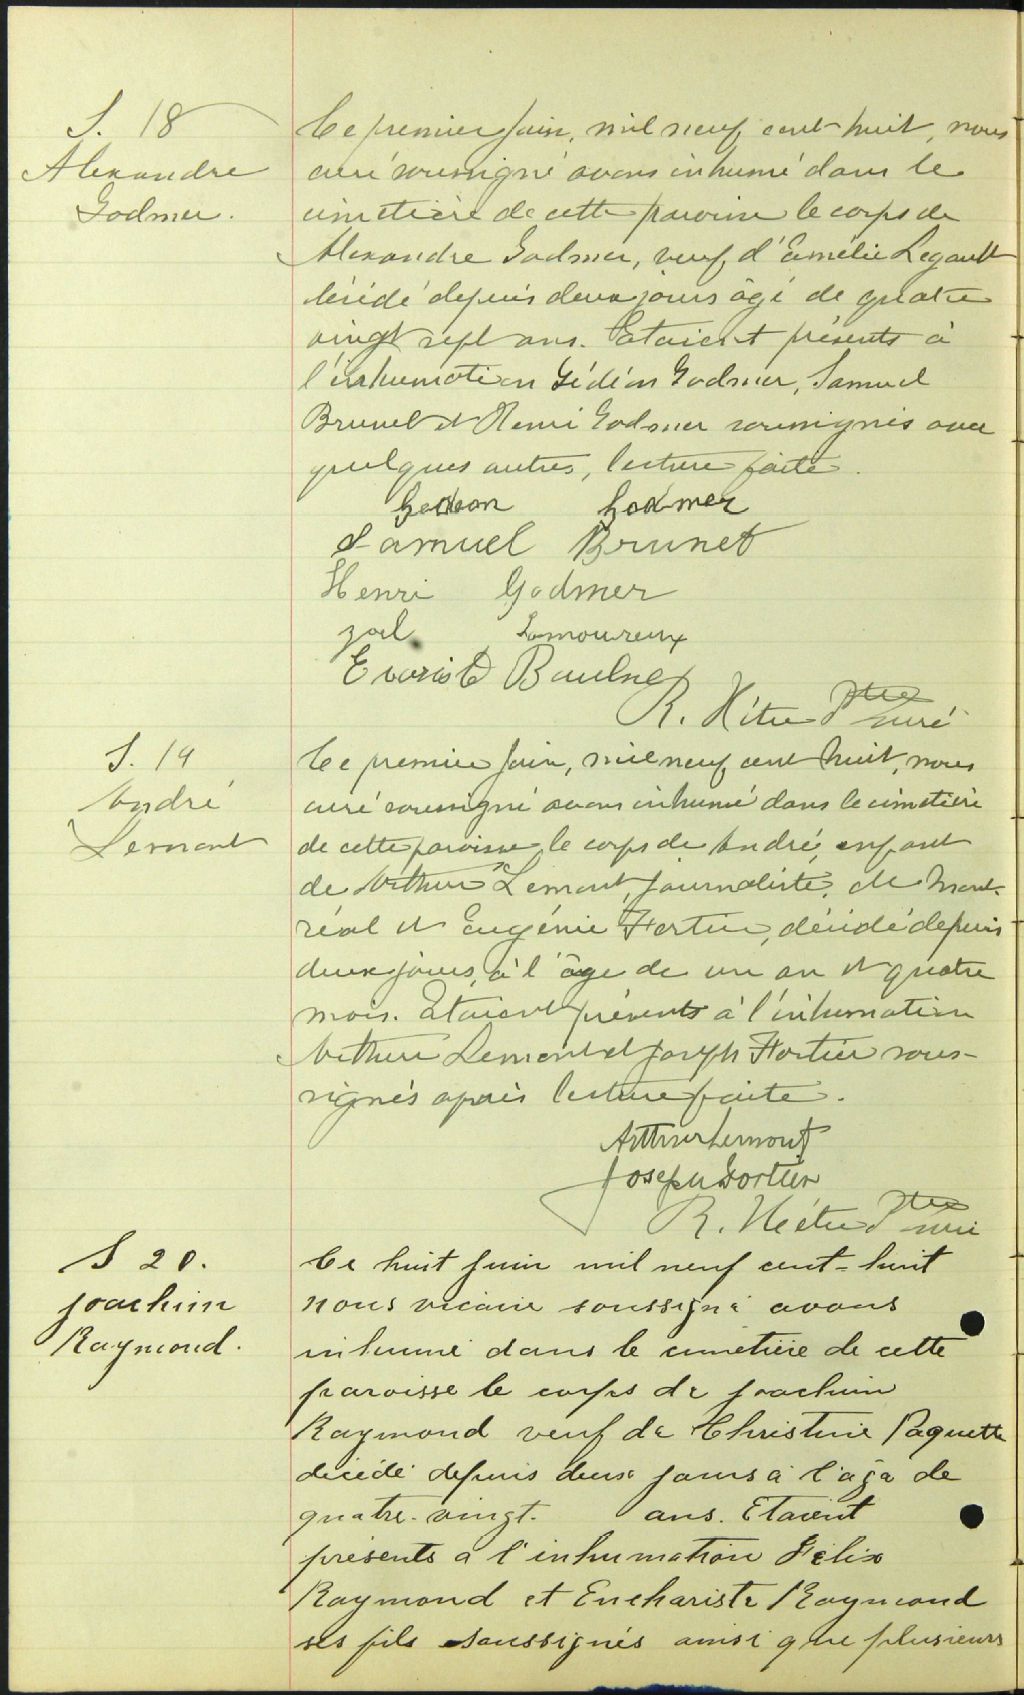 S. 18
Alexandre
Godmer.
Ce premier Juin, mil neuf cent huit, nous
curé soussigné avons inhumé dans le
cimetière de cette paroisse le corps de
Alexandre Godmer, veuf d'Emélie Legault
décédé depuis deux jours âgé de quatre
vingt sept ans. Etaient présents à
l'inhumation Gédéon Godmer, Samuel
Brunet et Henri Godmer soussignés avec
quelques autres, lecture faite.
Gedeon Godmer
Samuel Brunet
Henri Godmer
Joel Lamoureux
Evariste Baulne
R. Hétu Ptre curé
S. 19
André
Lemont
Ce premier Juin, mil neuf cent huit, nous
curé soussigné avons inhumé dans le cimetière
de cette paroisse le corps de André, enfant
de Arthur Lemont, journaliste, de Mont-
réal et Eugénie Fortier, décédé depuis
deux jours, à l'âge de un an et quatre
mois. Etaient présents à l'inhumation
Arthur Lemont et Joseph Fortier sous-
signés après lecture faite.
Arthur Lemont
Joseph Fortier
R. Hétu Ptre curé
S 20.
Joachim
Raymond.
Ce huit Juin mil neuf cent-huit
nous vicaire soussigné avons
inhumé dans le cimetière de cette
paroisse le corps de Joachim
Raymond veuf de Christine Paquette
décédé depuis deux jours à l'âge de
quatre-vingt- ans. Etaient
présents à l'inhumation Félix
Raymond et Euchariste Raymond
ses fils soussignés ainsi que plusieurs